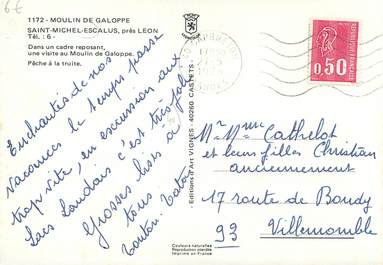 6€
1172 - MOULIN DE GALOPPE
SAINT-MICHEL-ESCALUS, près LEON
Tél. : 6 -
Dans un cadre reposant,
une visite au Moulin de Galoppe.
Pêche à la truite.
Enchantés de nos
vacances le temps passe
trop vite, en excursion aux
Lacs Landais c'est très joli
Grosses bises à
tous
Tonton. Tata
Editions d'Art VIGNES - 40260 CASTETS
Couleurs naturelles
Reproduction interdite
Imprimé en France
REPUBLIQUE FRANÇAISE
0,50
Mr Mme Cathelot
et leurs filles Christian
anciennement
17 route de Bondy
93 Villemomble